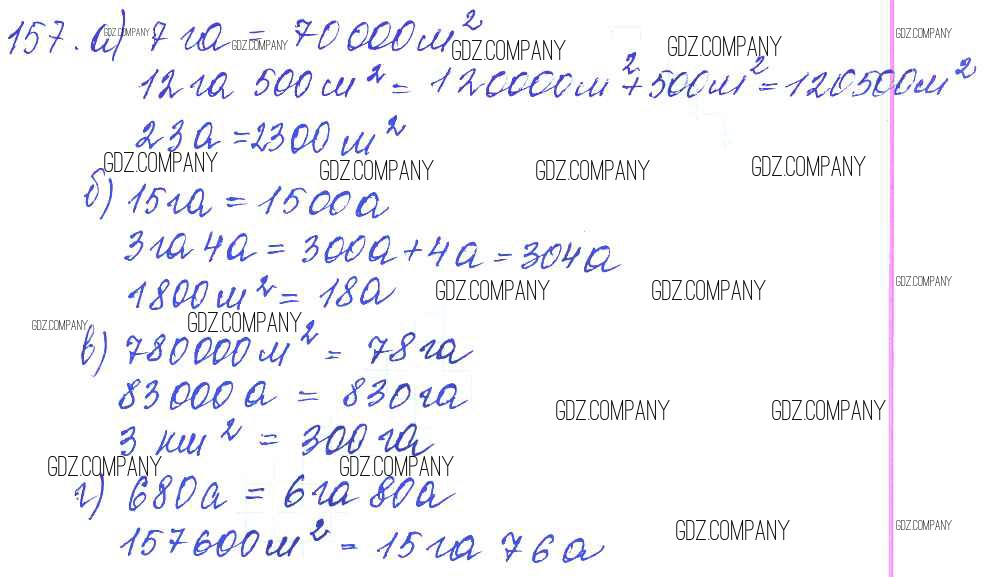 157. а) 7 га = 70000 м²
GDZ.COMPANY GDZ.COMPANY GDZ.COMPANY GDZ.COMPANY GDZ.COMPANY
12 га 500 м² = 120000 м² + 500 м² = 120500 м²
23 а = 2300 м²
GDZ.COMPANY GDZ.COMPANY GDZ.COMPANY GDZ.COMPANY GDZ.COMPANY
б) 15 га = 1500 а
3 га 4 а = 300 а + 4 а = 304 а
1800 м² = 18 а
GDZ.COMPANY GDZ.COMPANY GDZ.COMPANY
GDZ.COMPANY GDZ.COMPANY
в) 780000 м² = 78 га
83000 а = 830 га
GDZ.COMPANY GDZ.COMPANY GDZ.COMPANY
3 км² = 300 га
GDZ.COMPANY GDZ.COMPANY
г) 680 а = 6 га 80 а
GDZ.COMPANY GDZ.COMPANY
157600 м² = 15 га 76 а